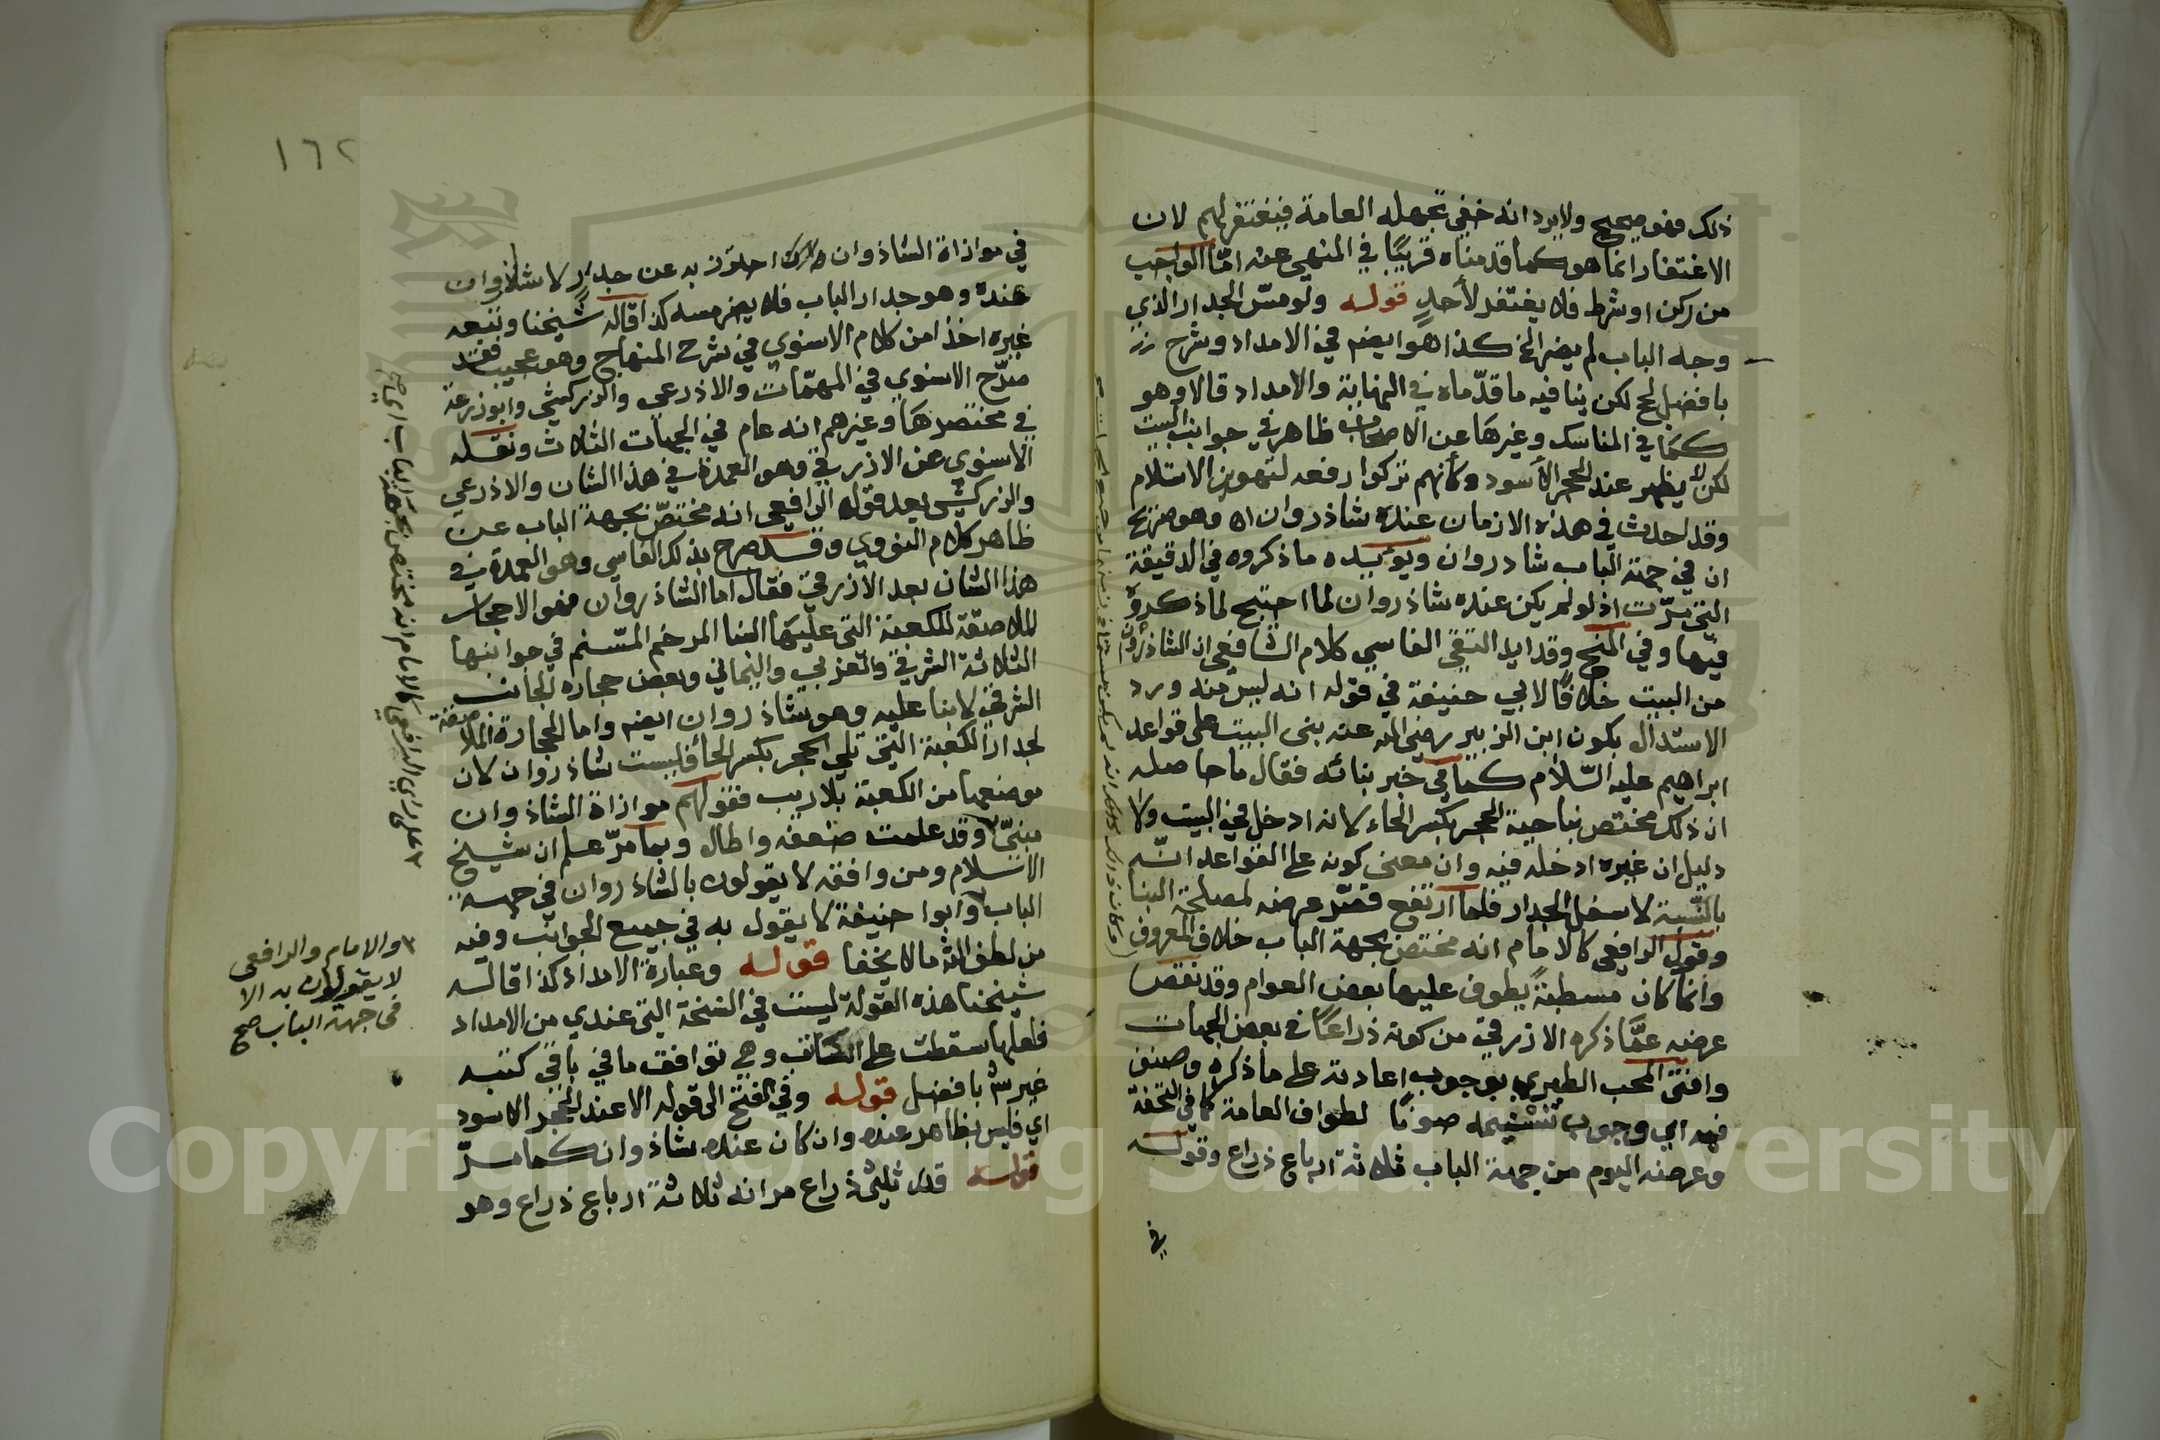 ذلك فهو صحيح ولا يرد انه خفي تجهله العامة فيغتفر لهم لان
الاغتفار انما هو كما قدمناه قريبًا في المنهي عنه امّا الواجب
من ركن او شرط فلا يغتفر لأحدٍ قوله ولو مسّ الجدار الذي
وجه الباب لم يضر الخ كذا هو ايضم في الامداد وشرح
بافضل لحج لكن ينافيه ما قدّماه في النهاية والامداد قالا وهو
كما في المناسك وغيرها عن الاصحاب ظاهر في جوانب البيت
لكن لا يظهر عند الحجر الأسود وكأنهم تركوا رفعه لتهوين الاستلام
وقد احدث في هذه الازمان عنده شاذروان اه وهو صريح
ان في جهة الباب شاذروان ويؤيده ما ذكروه في الدقيقة
التي مرّت اذ لو لم يكن عنده شاذروان لما احتيج لما ذكروه
فيها وفي المنح وقد ايد التقي الفاسي كلام الشافعي ان الشاذروان
من البيت خلافًا لابي حنيفة في قوله انه ليس منه ورد
الاستدال بكون ابن الزبير رضي الله عنه بنى البيت على قواعد
ابراهيم عليه السّلام كما في خبر بنائه فقال ما حاصله
ان ذلك مختص بناحية الحجر بكسر الحاء لانه ادخل في البيت ولا
دليل ان غيره ادخله فيه وان معنى كونه على القواعد انّه
بالنّسبة لاسفل الجدار فلما ارتفع قصّر عرضه لمصلحة البنا
وقول الرافعي كالامام انه مختص بجهة الباب خلاف المعروف
وانما كان مسطبةً يطوف عليها بعض العوام وقد نقص
عرضه عمّا ذكره الازرقي من كونه ذراعًا في بعض الجهات
وافتى المحب الطبري بوجوب اعادته على ما ذكره وصنف
فيه اي وجوب تسنيمه صونًا لطواف العامة كما في التحفة
وعرضه اليوم من جهة الباب ثلاثة ارباع ذراع وقوله
في
١٦٢
في موازاة الشاذروان به عن جدار لا شاذروان
عنده وهو جدار الباب فلا يضر مسه كذا قاله شيخنا وتبعه
غيره اخذا من كلام الاسنوي في شرح المنهاج وهو عجيب فقد
صرّح الاسنوي في المهمّات والاذرعي والزركشي وابو زرعة
في مختصرها وغيرهم انه عام في الجهات الثلاث ونقله
الاسنوي عن الازرقي وهو العمدة في هذا الشان والاذرعي
والزركشي بعد قوله الرافعي انه مختصّ بجهة الباب عن
ظاهر كلام النووي وقد صرح بذلك الفاسي وهو العمدة في
هذا الشان بعد الازرقي فقال اما الشاذروان فهو الاحجار
الملاصقة للكعبة التي عليها البنا المرخم المسّنم في جوانبها
الثلاثة الشرقي والغربي واليماني وبعض حجارة الجانب
الشرقي لا بنا عليه وهو شاذروان ايضم واما الحجارة الملاصقة
لجدار الكعبة التي تلي الحجر بكسر الحا فليست شاذروان لان
موضعها من الكعبة بلا ريب فقولهم موازاة الشاذروان
مبنيّ وقد علمت ضعفه واطال وبما مرّ علم ان شيخ
الاسلام ومن وافقه لا يقولون بالشاذروان في جهة
الباب وابوا حنيفة لا يقول به في جميع الجوانب وفيه
من لطف الله مالا يخفا قوله وعبارة الامداد كذا قاله
شيخنا هذه القولة ليست في النسخة التي عندي من الامداد
فلعلها سقطت على الكاتب وهي توافق ما في باقي كتبه
غير ش بافضل قوله وفي الفتح الى قوله الا عند الحجر الاسود
اي فليس بظاهر عنده وان كان عنده شاذروان كما مرّ
قوله قدر ثلثي ذراع مر انه ثلاثة ارباع ذراع وهو
والامام والرافعي
لا يقولون به الا
في جهة الباب صح